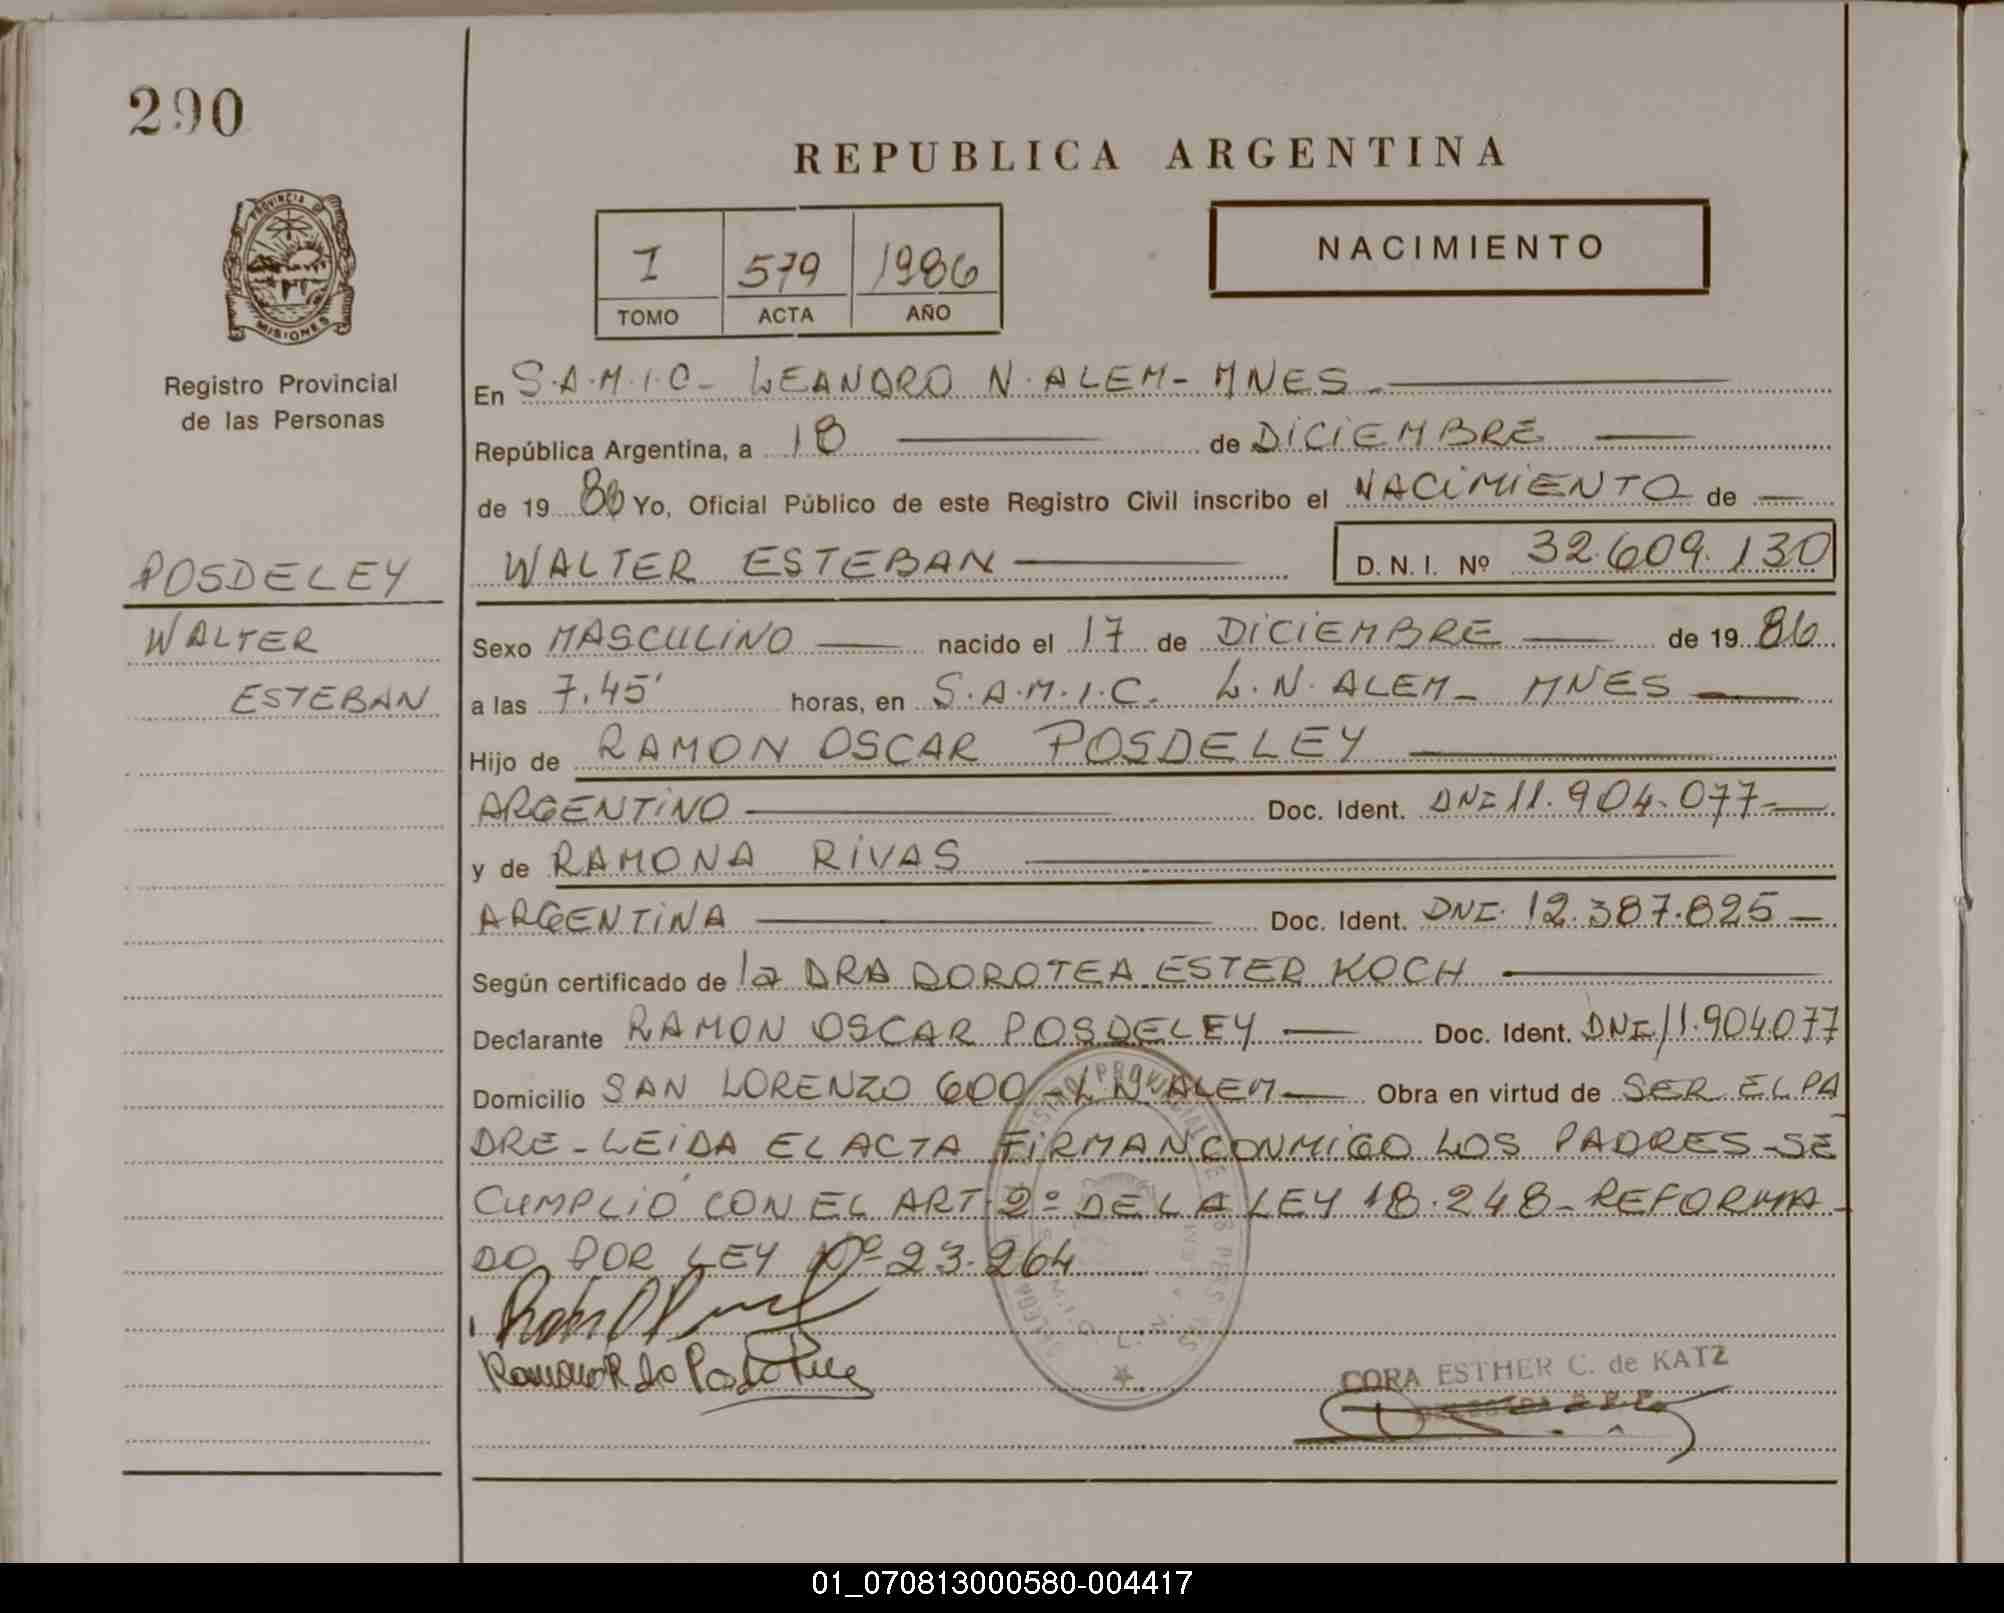 290
REPUBLICA ARGENTINA
PROVINCIA D
MISIONES
Registro Provincial
de las Personas
I 579 1986
TOMO ACTA AÑO
NACIMIENTO
En S.A.M.I.C- LEANDRO N. ALEM- MNES-
República Argentina, a 18 de DICIEMBRE
de 19 86 Yo, Oficial Público de este Registro Civil inscribo el NACIMIENTO de
POSDELEY
WALTER ESTEBAN D. N. I. Nº 32.609.130
WALTER
ESTEBAN
Sexo MASCULINO nacido el 17 de DICIEMBRE de 19 86
a las 7.45' horas, en S.A.M.I.C. L.N. ALEM- MNES
Hijo de RAMON OSCAR POSDELEY
ARGENTINO Doc. Ident. DNI 11.904.077-
y de RAMONA RIVAS
ARGENTINA Doc. Ident. DNI. 12.387.825
Según certificado de la DRA DOROTEA ESTER KOCH
Declarante RAMON OSCAR POSDELEY Doc. Ident. DNI. 11.904.077
Domicilio SAN LORENZO 600-L.N.ALEM Obra en virtud de SER EL PA
DRE-LEIDA EL ACTA FIRMAN CONMIGO LOS PADRES-SE
CUMPLIO CON EL ART. 2º DE LA LEY 18.248-REFORMA-
DO POR LEY Nº 23.264
CORA ESTHER C. de KATZ
01_070813000580-004417